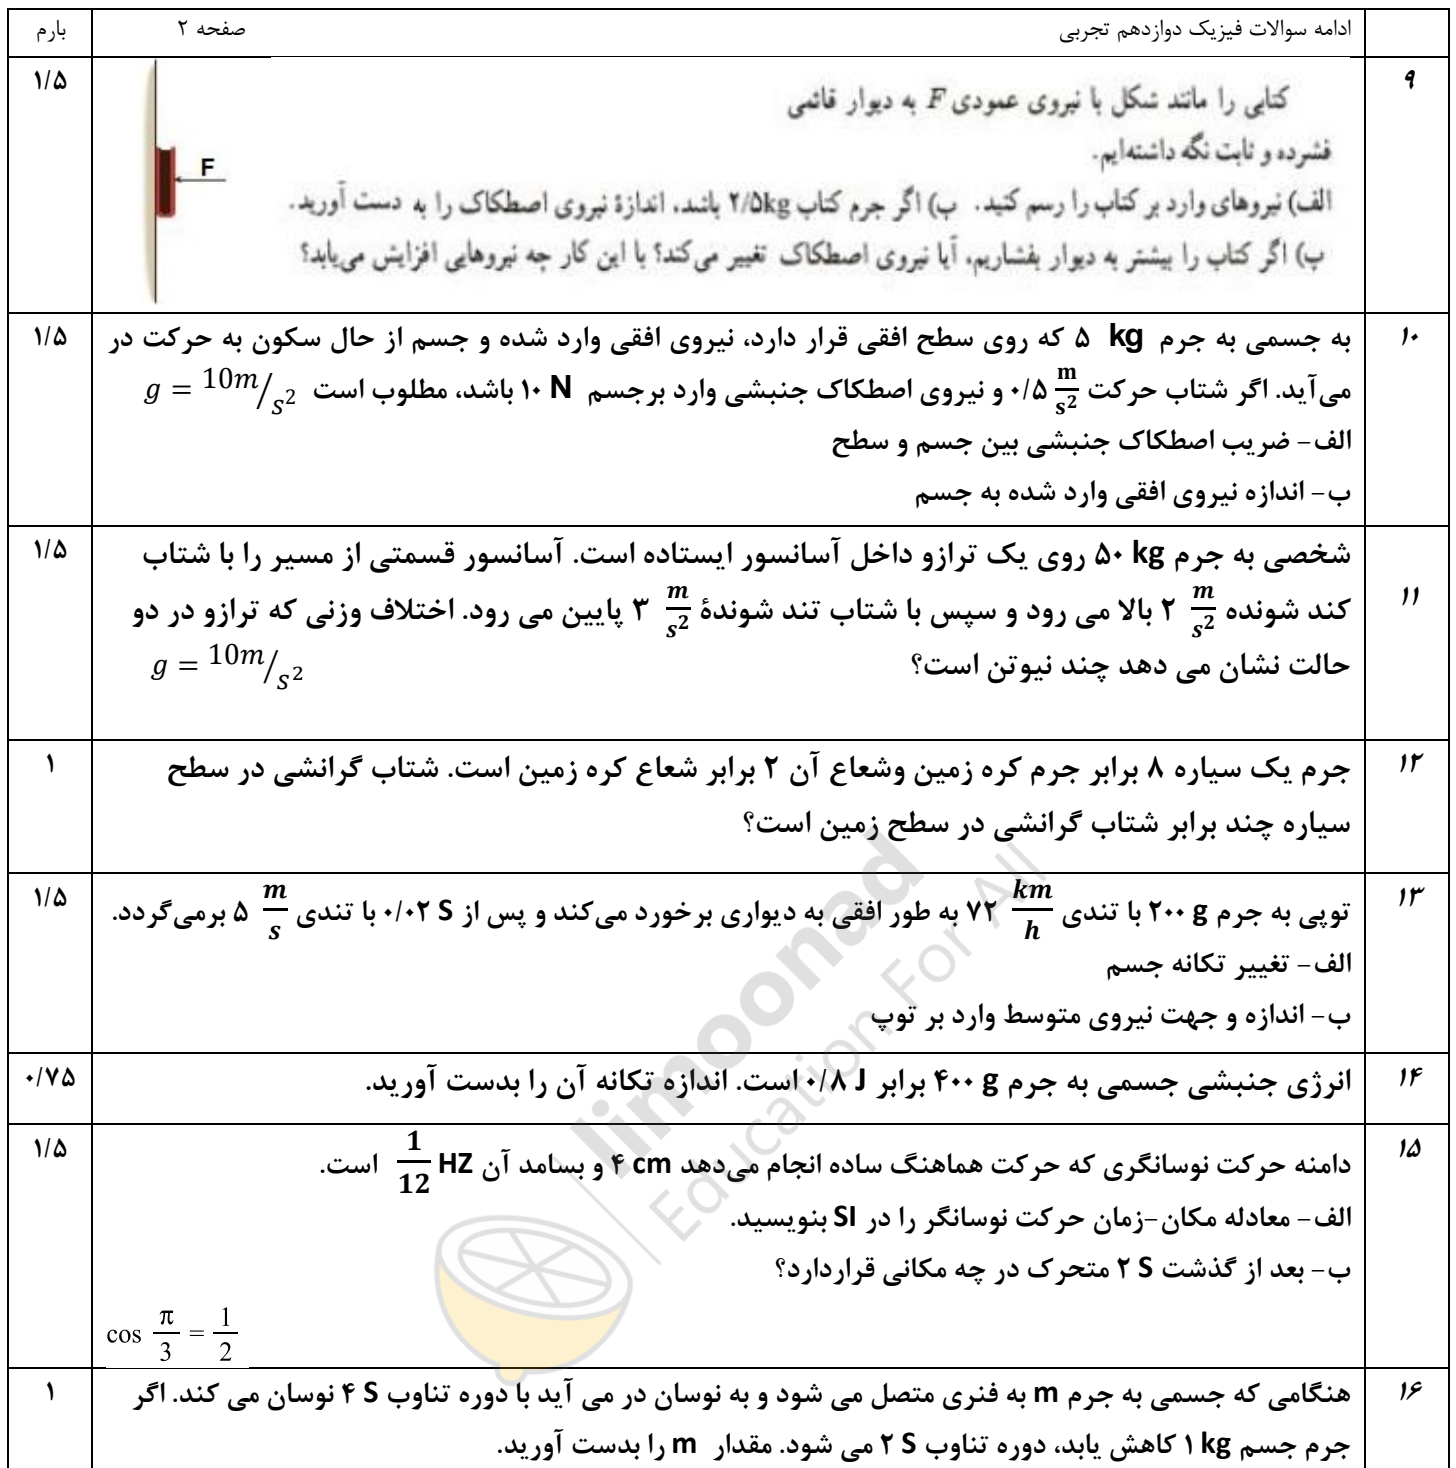 ادامه سوالات فیزیک دوازدهم تجربی صفحه ۲ بارم
۹ کتابی را مانند شکل با نیروی عمودی F به دیوار قائمی ۱/۵
فشرده و ثابت نگه داشته‌ایم.
F
الف) نیروهای وارد بر کتاب را رسم کنید. ب) اگر جرم کتاب ۲/۵kg باشد، اندازهٔ نیروی اصطکاک را به دست آورید.
پ) اگر کتاب را بیشتر به دیوار بفشاریم، آیا نیروی اصطکاک تغییر می‌کند؟ با این کار چه نیروهایی افزایش می‌یابد؟
۱۰ به جسمی به جرم ۵ kg که روی سطح افقی قرار دارد، نیروی افقی وارد شده و جسم از حال سکون به حرکت در ۱/۵
می‌آید. اگر شتاب حرکت ۰/۵ m/s² و نیروی اصطکاک جنبشی وارد برجسم ۱۰ N باشد، مطلوب است g = 10m/s²
الف- ضریب اصطکاک جنبشی بین جسم و سطح
ب- اندازه نیروی افقی وارد شده به جسم
۱۱ شخصی به جرم ۵۰ kg روی یک ترازو داخل آسانسور ایستاده است. آسانسور قسمتی از مسیر را با شتاب ۱/۵
کند شونده ۲ m/s² بالا می رود و سپس با شتاب تند شوندهٔ ۳ m/s² پایین می رود. اختلاف وزنی که ترازو در دو
حالت نشان می دهد چند نیوتن است؟ g = 10m/s²
۱۲ جرم یک سیاره ۸ برابر جرم کره زمین وشعاع آن ۲ برابر شعاع کره زمین است. شتاب گرانشی در سطح ۱
سیاره چند برابر شتاب گرانشی در سطح زمین است؟
۱۳ توپی به جرم ۲۰۰ g با تندی ۷۲ km/h به طور افقی به دیواری برخورد می‌کند و پس از ۰/۰۲ S با تندی ۵ m/s برمی‌گردد. ۱/۵
الف- تغییر تکانه جسم
ب- اندازه و جهت نیروی متوسط وارد بر توپ
۱۴ انرژی جنبشی جسمی به جرم ۴۰۰ g برابر ۰/۸ J است. اندازه تکانه آن را بدست آورید. ۰/۷۵
۱۵ دامنه حرکت نوسانگری که حرکت هماهنگ ساده انجام می‌دهد ۴ cm و بسامد آن 1/12 HZ است. ۱/۵
الف- معادله مکان-زمان حرکت نوسانگر را در SI بنویسید.
ب- بعد از گذشت ۲ S متحرک در چه مکانی قراردارد؟
cos π/3 = 1/2
۱۶ هنگامی که جسمی به جرم m به فنری متصل می شود و به نوسان در می آید با دوره تناوب ۴ S نوسان می کند. اگر ۱
جرم جسم ۱ kg کاهش یابد، دوره تناوب ۲ S می شود. مقدار m را بدست آورید.
limoonad
Education For All